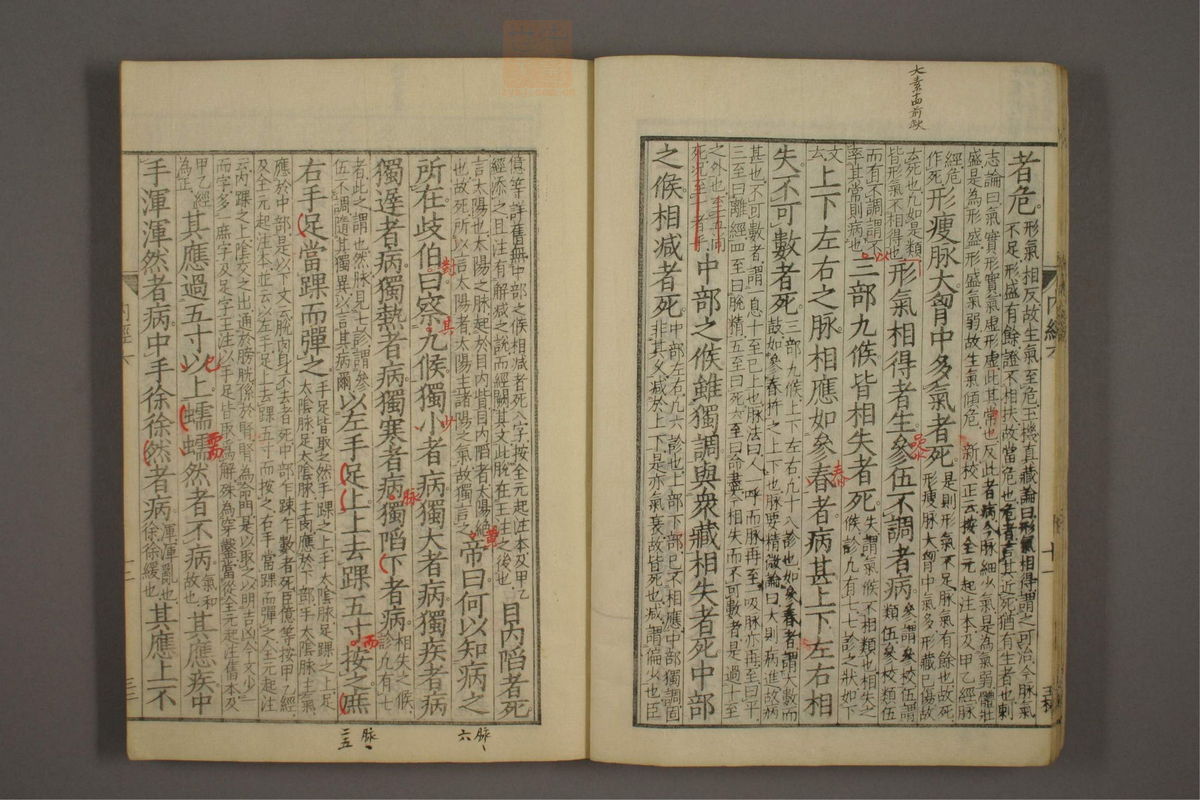 大素十四前缺
者危
形氣相反故生氣至危玉機真藏論曰形氣相得謂之可治今脉氣
不足形盛有餘證不相扶故當危也危者言其近死猶有生者也刺
志論曰氣實形實氣虛形虛此其常也反此者病今脉細少氣是為氣弱體壯
盛是為形盛形盛氣弱故生氣傾危 新校正云按全元起注本及甲乙經脉
經危
作死
形瘦脉大胷中多氣者死
是則形氣不足脉氣有餘也故死
形瘦脉大胷中氣多形藏已傷故
云死也凡如是類
皆形氣不相得也
形氣相得者生參伍不調者病
參謂參校伍謂
類伍參校類伍
而有不調謂不
率其常則病也
三部九候皆相失者死
失謂氣候不相類也相失之
候診凡有七七診之狀如下
文
云
上下左右之脉相應如參舂者病甚上下左右相
失不可數者死
三部九候上下左右凡十八診也如參舂者謂大數而
鼓如參舂杵之上下也脉要精微論曰大則病進故病
甚也不可數者謂一息十至已上也脉法曰人一呼而脉再至一吸脉亦再至曰平
三至曰離經四至曰脫精五至曰死六至曰命盡今相失而不可數者是過十至
之外也至五尚
死況至十者乎
中部之候雖獨調與衆藏相失者死中部
之候相減者死
中部左右凡六診也上部下部已不相應中部獨調固
非其久減於上下是亦氣衰故皆死也減謂偏少也臣
內經六
十一
億等詳舊無中部之候相減者死八字按全元起注本及甲乙
經添之且注有解減之說而經闕其文此脫在王注之後也
目內陷者死
言太陽也太陽之脉起於目內眥目內陷者太陽絕
也故死所以言太陽者太陽主諸陽之氣故獨言之
帝曰何以知病之
所在歧伯曰察九候獨小者病獨大者病獨疾者病
獨遲者病獨熱者病獨寒者病獨陷下者病
相失之候
診凡有七
者此之謂也然脉見七診謂參
伍不調隨其獨異以言其病爾
以左手足上上去踝五寸按之庶
右手足當踝而彈之
手足皆取之然手踝之上手太陰脉足踝之上足
太陰脉足太陰脉主肉應於下部手太陰脉主氣
應於中部是以下文云脫肉身不去者死中部乍踈乍數者死臣億等按甲乙經
及全元起注本並云以左手足上去踝五寸而按之右手當踝而彈之全元起注
云內踝之上陰交之出通於膀胱係於腎腎為命門是以取之以明吉凶今文少一
而字多一庶字及足字王注以手足皆取為解殊為穿鑿當從全元起注舊本及
甲乙經
為正
其應過五寸以上蠕蠕然者不病
氣和
故也
其應疾中
手渾渾然者病中手徐徐然者病
渾渾亂也
徐徐緩也
其應上不
脉、六
脉、二五